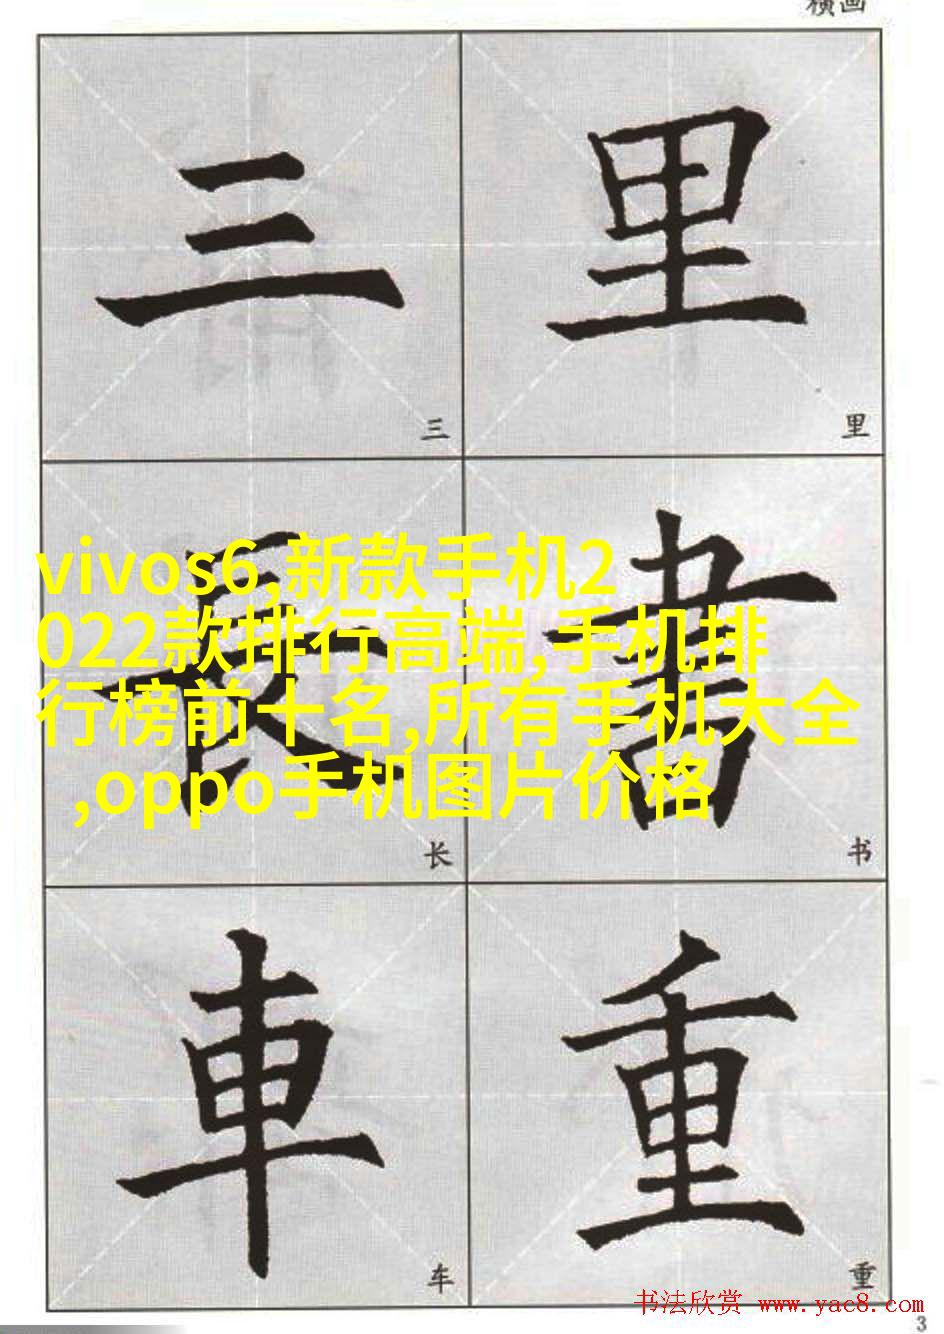 横画
三 里
三 里
vivos6,新款手机2
022款排行高端,手机排
行榜前十名,所有手机大全
,oppo手机图片价格
長 書
长 书
車 重
车 重
书法欣赏 www.yac8.com
3